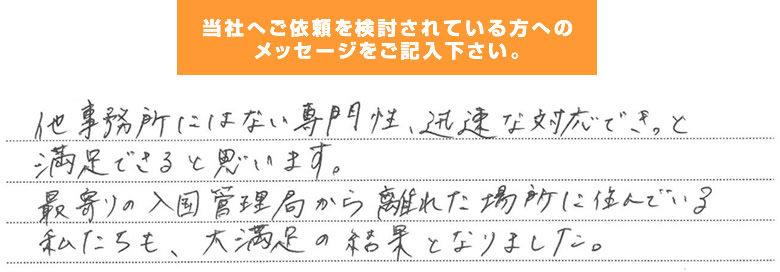 当社へご依頼を検討されている方への
メッセージをご記入下さい。
他事務所にはない専門性、迅速な対応できっと
満足できると思います。
最寄りの入国管理局から離れた場所に住んでいる
私たちも、大満足の結果となりました。